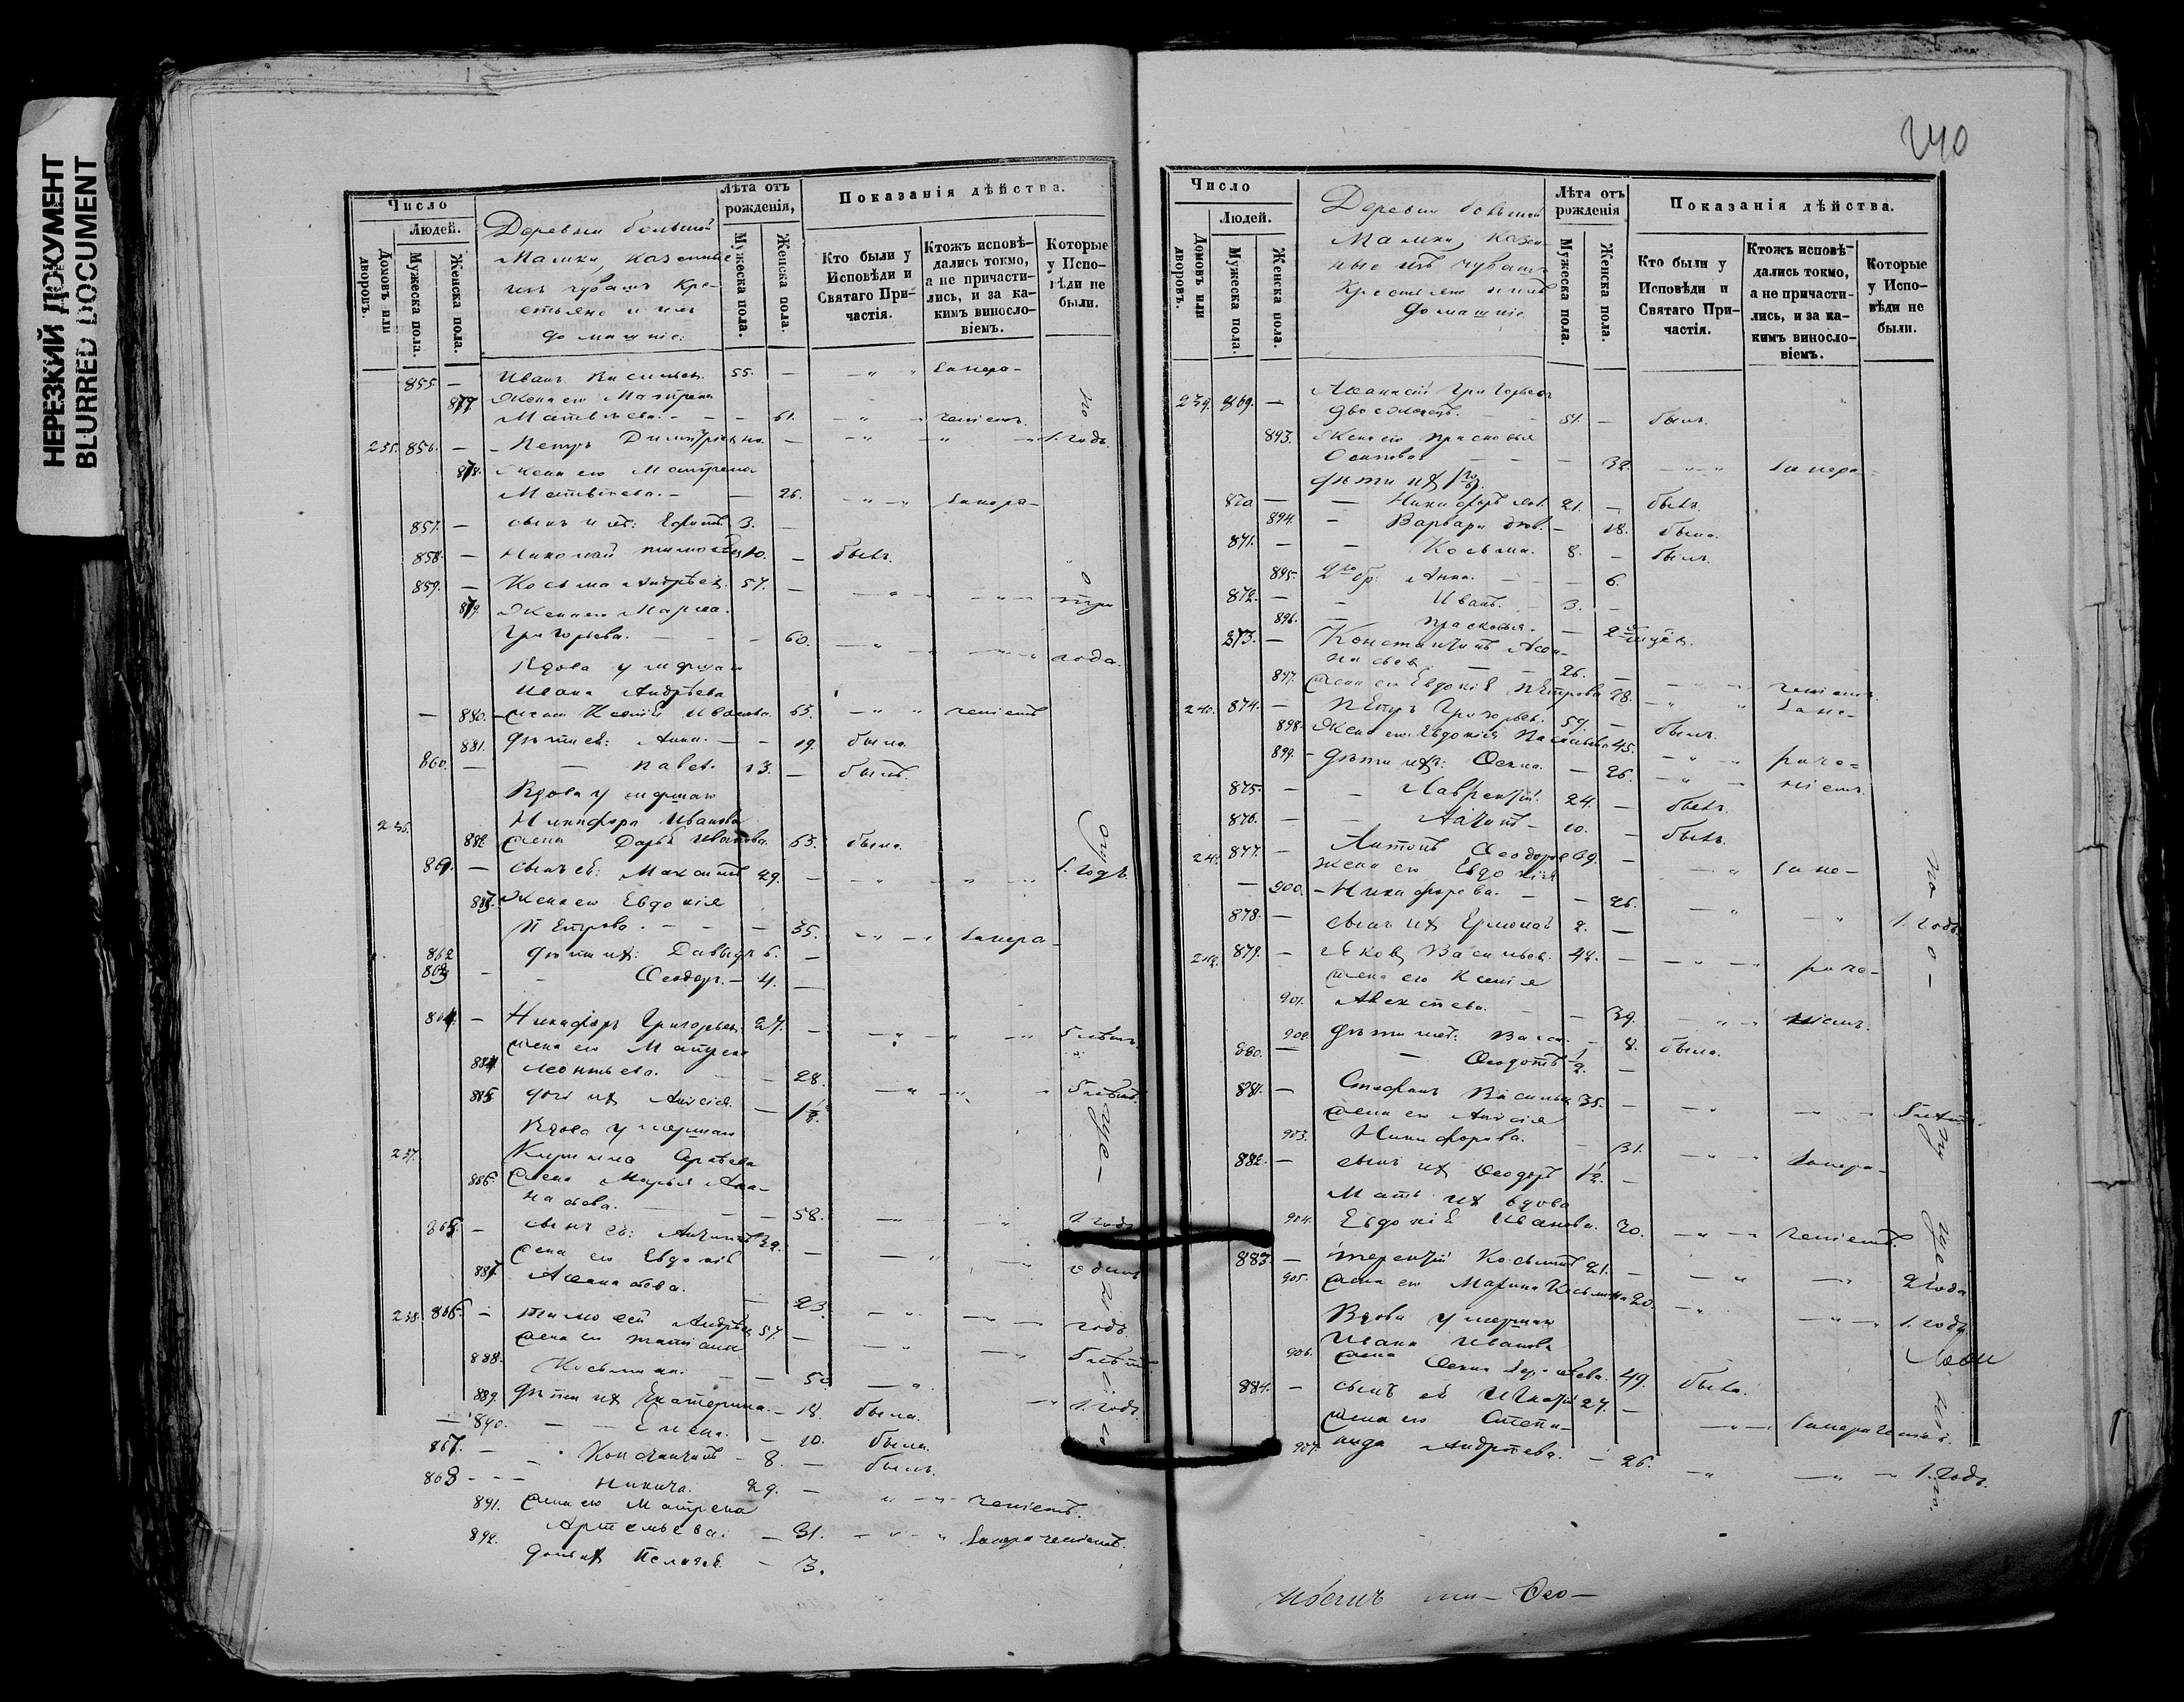 НЕРЕЗКИЙ ДОКУМЕНТ
BLURRED DOCUMENT
Число
Людей.
Домовъ или дворовъ.
Мужеска пола.
Женска пола.
Деревни большой
Маліки, казенные
изъ чувашъ Кре-
стьяне и ихъ
домашніе:
Лѣта отъ рожденія,
Мужеска пола.
Женска пола.
Показанія дѣйства.
Кто были у Исповѣди и Святаго Причастія.
Ктожъ исповѣдались токмо, а не причастились, и за какимъ винословіемъ.
Которые у Исповѣди не были.
855 — Иванъ Васильев. 55. — Занера-
877. Жена его Матрена
Матвѣева. — 61. ченіемъ.
235. 856. — Петръ Димитріев — 1. годъ.
878. Жена его Матрена
Матвѣева. — 26. Занера-
857. — сынъ ихъ: 3. —
858. — Николай 10. — былъ.
859. — Косьма Андрѣев. 57. —
879. Жена его Марѳа
Григорьева. — 60.
года.
Вдова умершаго
Ивана Андрѣева
— 880. жена Ксенія Иванова. 65. ченіемъ
881. дѣти ея: Анна. — 19. была.
860. — Павел. 13. — былъ.
Вдова умершаго
236. Никифора Иванова
882. жена Дарья Иванова. 63. была.
861. — сынъ ея: Максимъ 29. — 1. годъ.
883. Жена его Евдокія
Петрова. — 35. Занера-
862 дѣти ихъ: Давыдъ 6. —
863 — Ѳеодоръ. — 4. —
864. — Никифоръ Григорьев. 27. — 5 лѣтъ.
жена его Матрена
884 Леонтьева. — 28. 5 лѣтъ.
885 дочь ихъ Анисія. — 1 1/2.
Вдова умершаго
237. Кирилла Сергѣева
886. жена Марья Аѳа-
насьева. — 58. 1. годъ
865. — сынъ ея: 32. —
жена его Евдокія
887. Аѳанасьева. — 23. одинъ
238. 866. — Тимоѳей Андрѣев. 57. — годъ.
жена его Татіана
888. Косьмина. — 50
889. дѣти ихъ Екатерина. — 18. была. 1. годъ.
890. — Елена. — 10. была.
867. — Константинъ — 8. — былъ.
868 — Никита. 29. — ченіемъ.
891. жена его Матрена
Артемьева: — 31. Занераченіемъ.
892. дочь ихъ Пелагея. — 3.
240
Число
Людей.
Домовъ или дворовъ.
Мужеска пола.
Женска пола.
Деревни большой
Маліки, Казен-
ные изъ чувашъ
Крестьяне и ихъ
домашніе
Лѣта отъ рожденія
Мужеска пола.
Женска пола.
Показанія дѣйства.
Кто были у Исповѣди и Святаго Причастія.
Ктожъ исповѣдались токмо, а не причастились, и за какимъ винословіемъ.
Которые у Исповѣди не были.
239. 869. — Аѳанасій Григорьевъ
двоеженецъ. 51. — былъ.
893. Жена его Прасковья
Осипова — 32. Занера-
дѣти ихъ
870 — Никифоръ 21. — былъ.
894. — Варвара — 18. была.
871. — Косьма. 8. — былъ.
895. Анна. — 6.
872. — Иванъ. 3. —
896. — Прасковья. — 2
873. — Константинъ Аѳа-
насьев — 26. —
897. жена его Евдокія Петрова 28. ченіемъ.
240. 874. — Петръ Григорьев. 59. — былъ. Зане-
898. Жена его Евдокія Васильева 45.
899. — дѣти ихъ: Ѳекла. — 26. раче-
875. — Лаврентій. 24. — былъ. ніемъ.
876. — 10. — былъ.
241. 877. — Антонъ Ѳеодоров 69. — Зане-
жена его Евдокія
— 900. — Никифорова. — 26.
878. — сынъ ихъ Ермолай 2. — 1. годъ
242. 879. — Яковъ Васильев. 42. — раче-
жена его Ксенія
901. Алексѣева. — 39. ніемъ.
902. дѣти ихъ: Васса. — 8. была.
880. — Ѳеодотъ 1/2. —
881. — Стефанъ Васильев 35. —
жена его Анисія
903. Никифорова. — 31. Занера-
882. — сынъ ихъ Ѳеодоръ 1 1/2. —
Мать ихъ вдова
904. Евдокія Иванова. 70. ченіемъ.
883. — Терентій Косьминъ 21. — 2 года
905. жена его Марина Косьмина 20. 1. годъ.
Вдова умершаго
Ивана Иванова
906. жена Ѳекла 49. была.
884. — сынъ ея Игнатій 27. — Занераченіемъ.
жена его Степа-
907. нида Андрѣева. — 26. — 1. годъ.